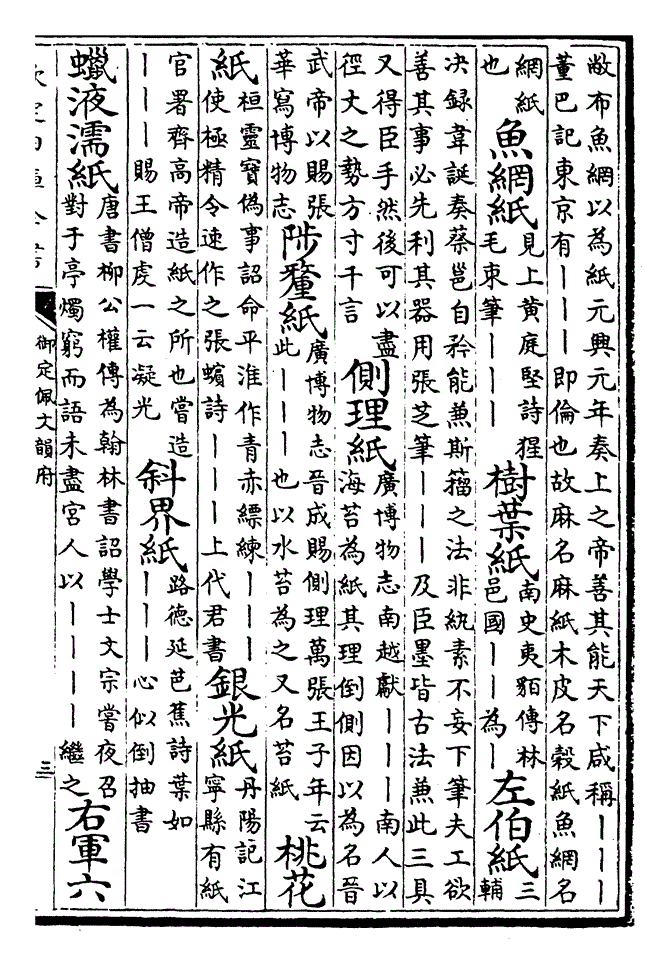 敝布魚網以為紙元興元年奏上之帝善其能天下咸稱丨丨丨
董巴記東京有丨丨丨即倫也故麻名麻紙木皮名榖紙魚網名
網紙
也
魚網紙
見上黄庭堅詩猩
毛束筆丨丨丨
樹葉紙
南史夷貊傳林
邑國丨丨為丨
左伯紙
三
輔
決録韋誕奏蔡邕自矜能兼斯籀之法非紈素不妄下筆夫工欲
善其事必先利其器用張芝筆丨丨丨及臣墨皆古法兼此三具
又得臣手然後可以盡
徑丈之勢方寸千言
側理紙
廣博物志南越獻丨丨丨南人以
海苔為紙其理倒側因以為名晉
武帝以賜張
華寫博物志
陟釐紙
廣博物志晉成賜側理萬張王子年云
此丨丨丨也以水苔為之又名苔紙
桃花
紙
桓靈寶偽事詔命平淮作青赤縹練丨丨丨
使極精令速作之張蠙詩丨丨丨上代君書
銀光紙
丹陽記江
寧縣有紙
官署齊高帝造紙之所也嘗造
丨丨丨賜王僧虔一云凝光
斜界紙
路德延芭蕉詩葉如
丨丨丨心似倒抽書
蠟液濡紙
唐書柳公權傳為翰林書詔學士文宗嘗夜召
對于亭燭窮而語未盡宮人以丨丨丨丨繼之
右軍六
御定佩文韻府
三